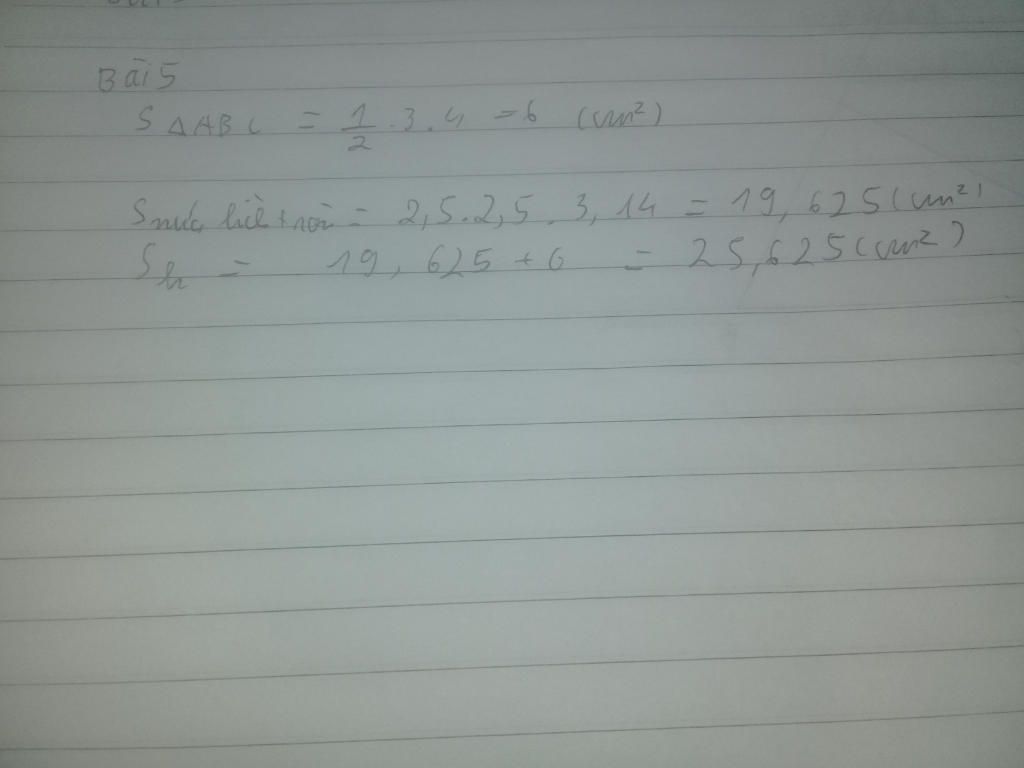 Bài 5
S ΔABC = 1/2 . 3 . 4 = 6 (cm²)
S = 2,5 . 2,5 . 3,14 = 19,625 (cm²)
Sh = 19,625 + 6 = 25,625 (cm²)